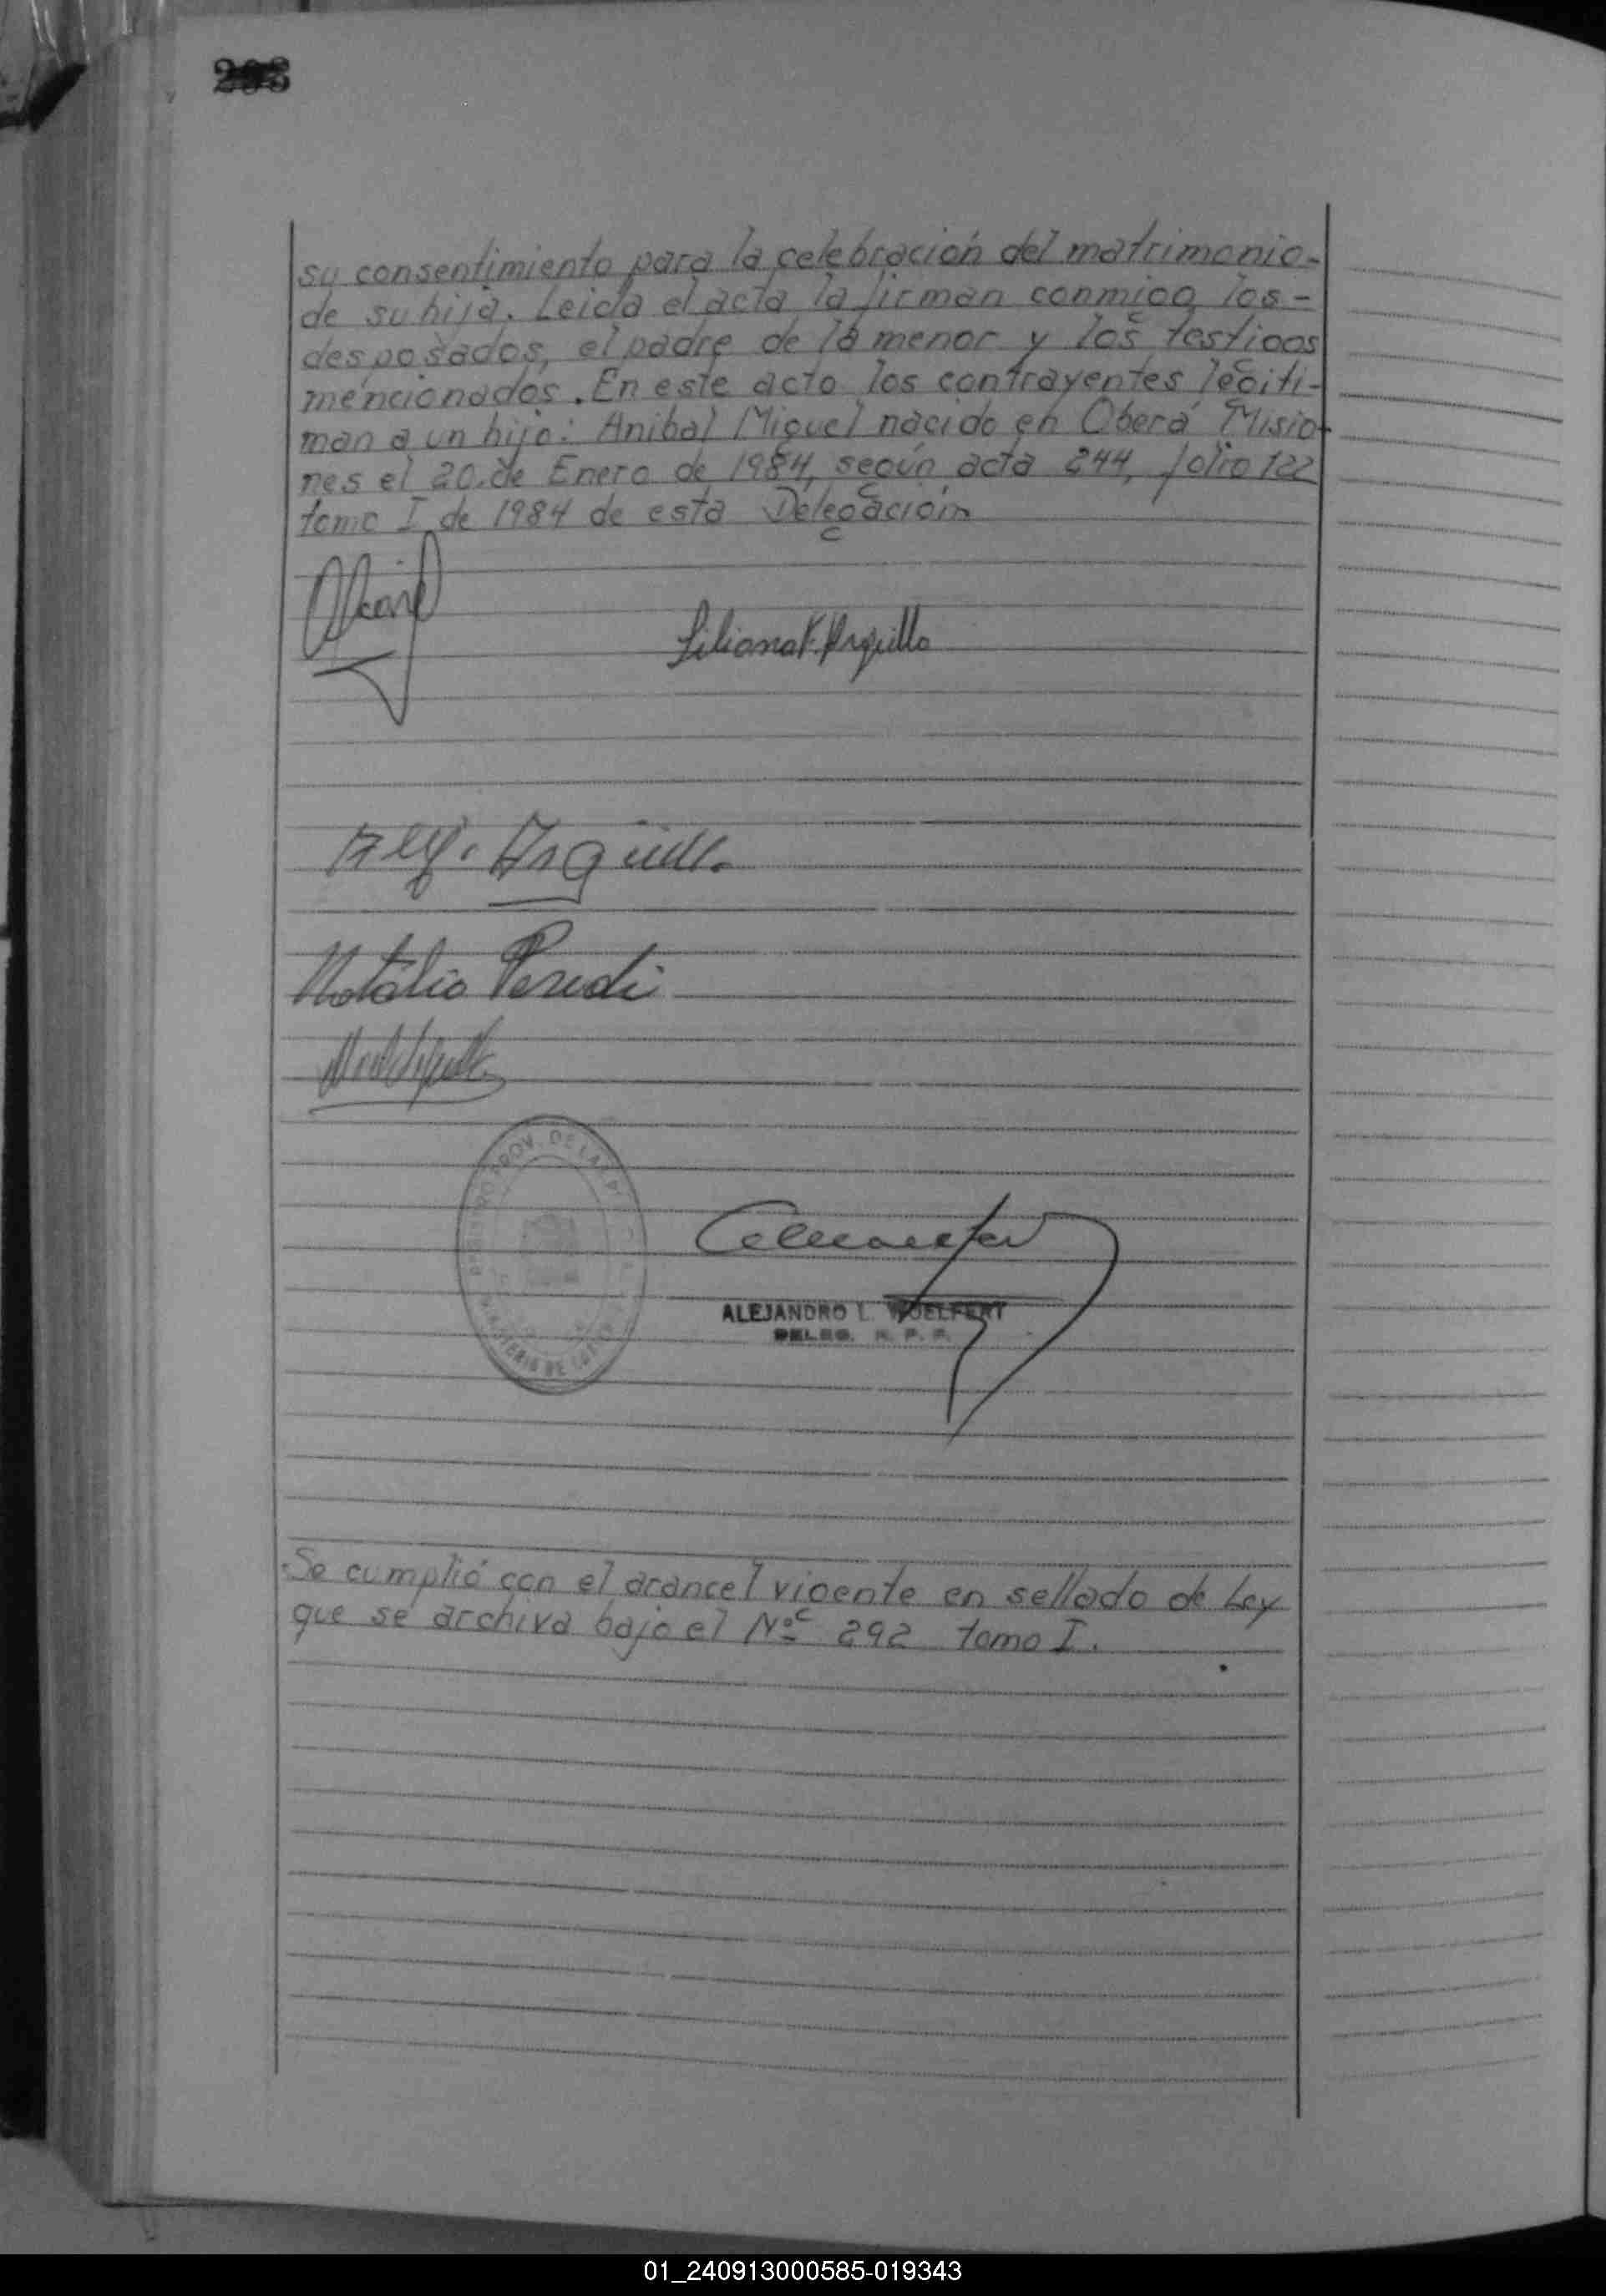 su consentimiento para la celebración del matrimonio-
de su hija. Leida el acta la firman conmigo los-
desposados, el padre de la menor y los testigos
mencionados. En este acto los contrayentes legiti-
man a un hijo: Anibal Miguel nacido en Oberá Misio-
nes el 20 de Enero de 1984, según acta 244, folio 122
tomo I de 1984 de esta Delegación
Liliana F. Arguello
Natalio Peredi
PROV. DE LA
ALEJANDRO L. WOELFERT
DELEG. R. P. P.
Se cumplió con el arancel vigente en sellado de Ley
que se archiva bajo el Nº 292 tomo I.
01_240913000585-019343